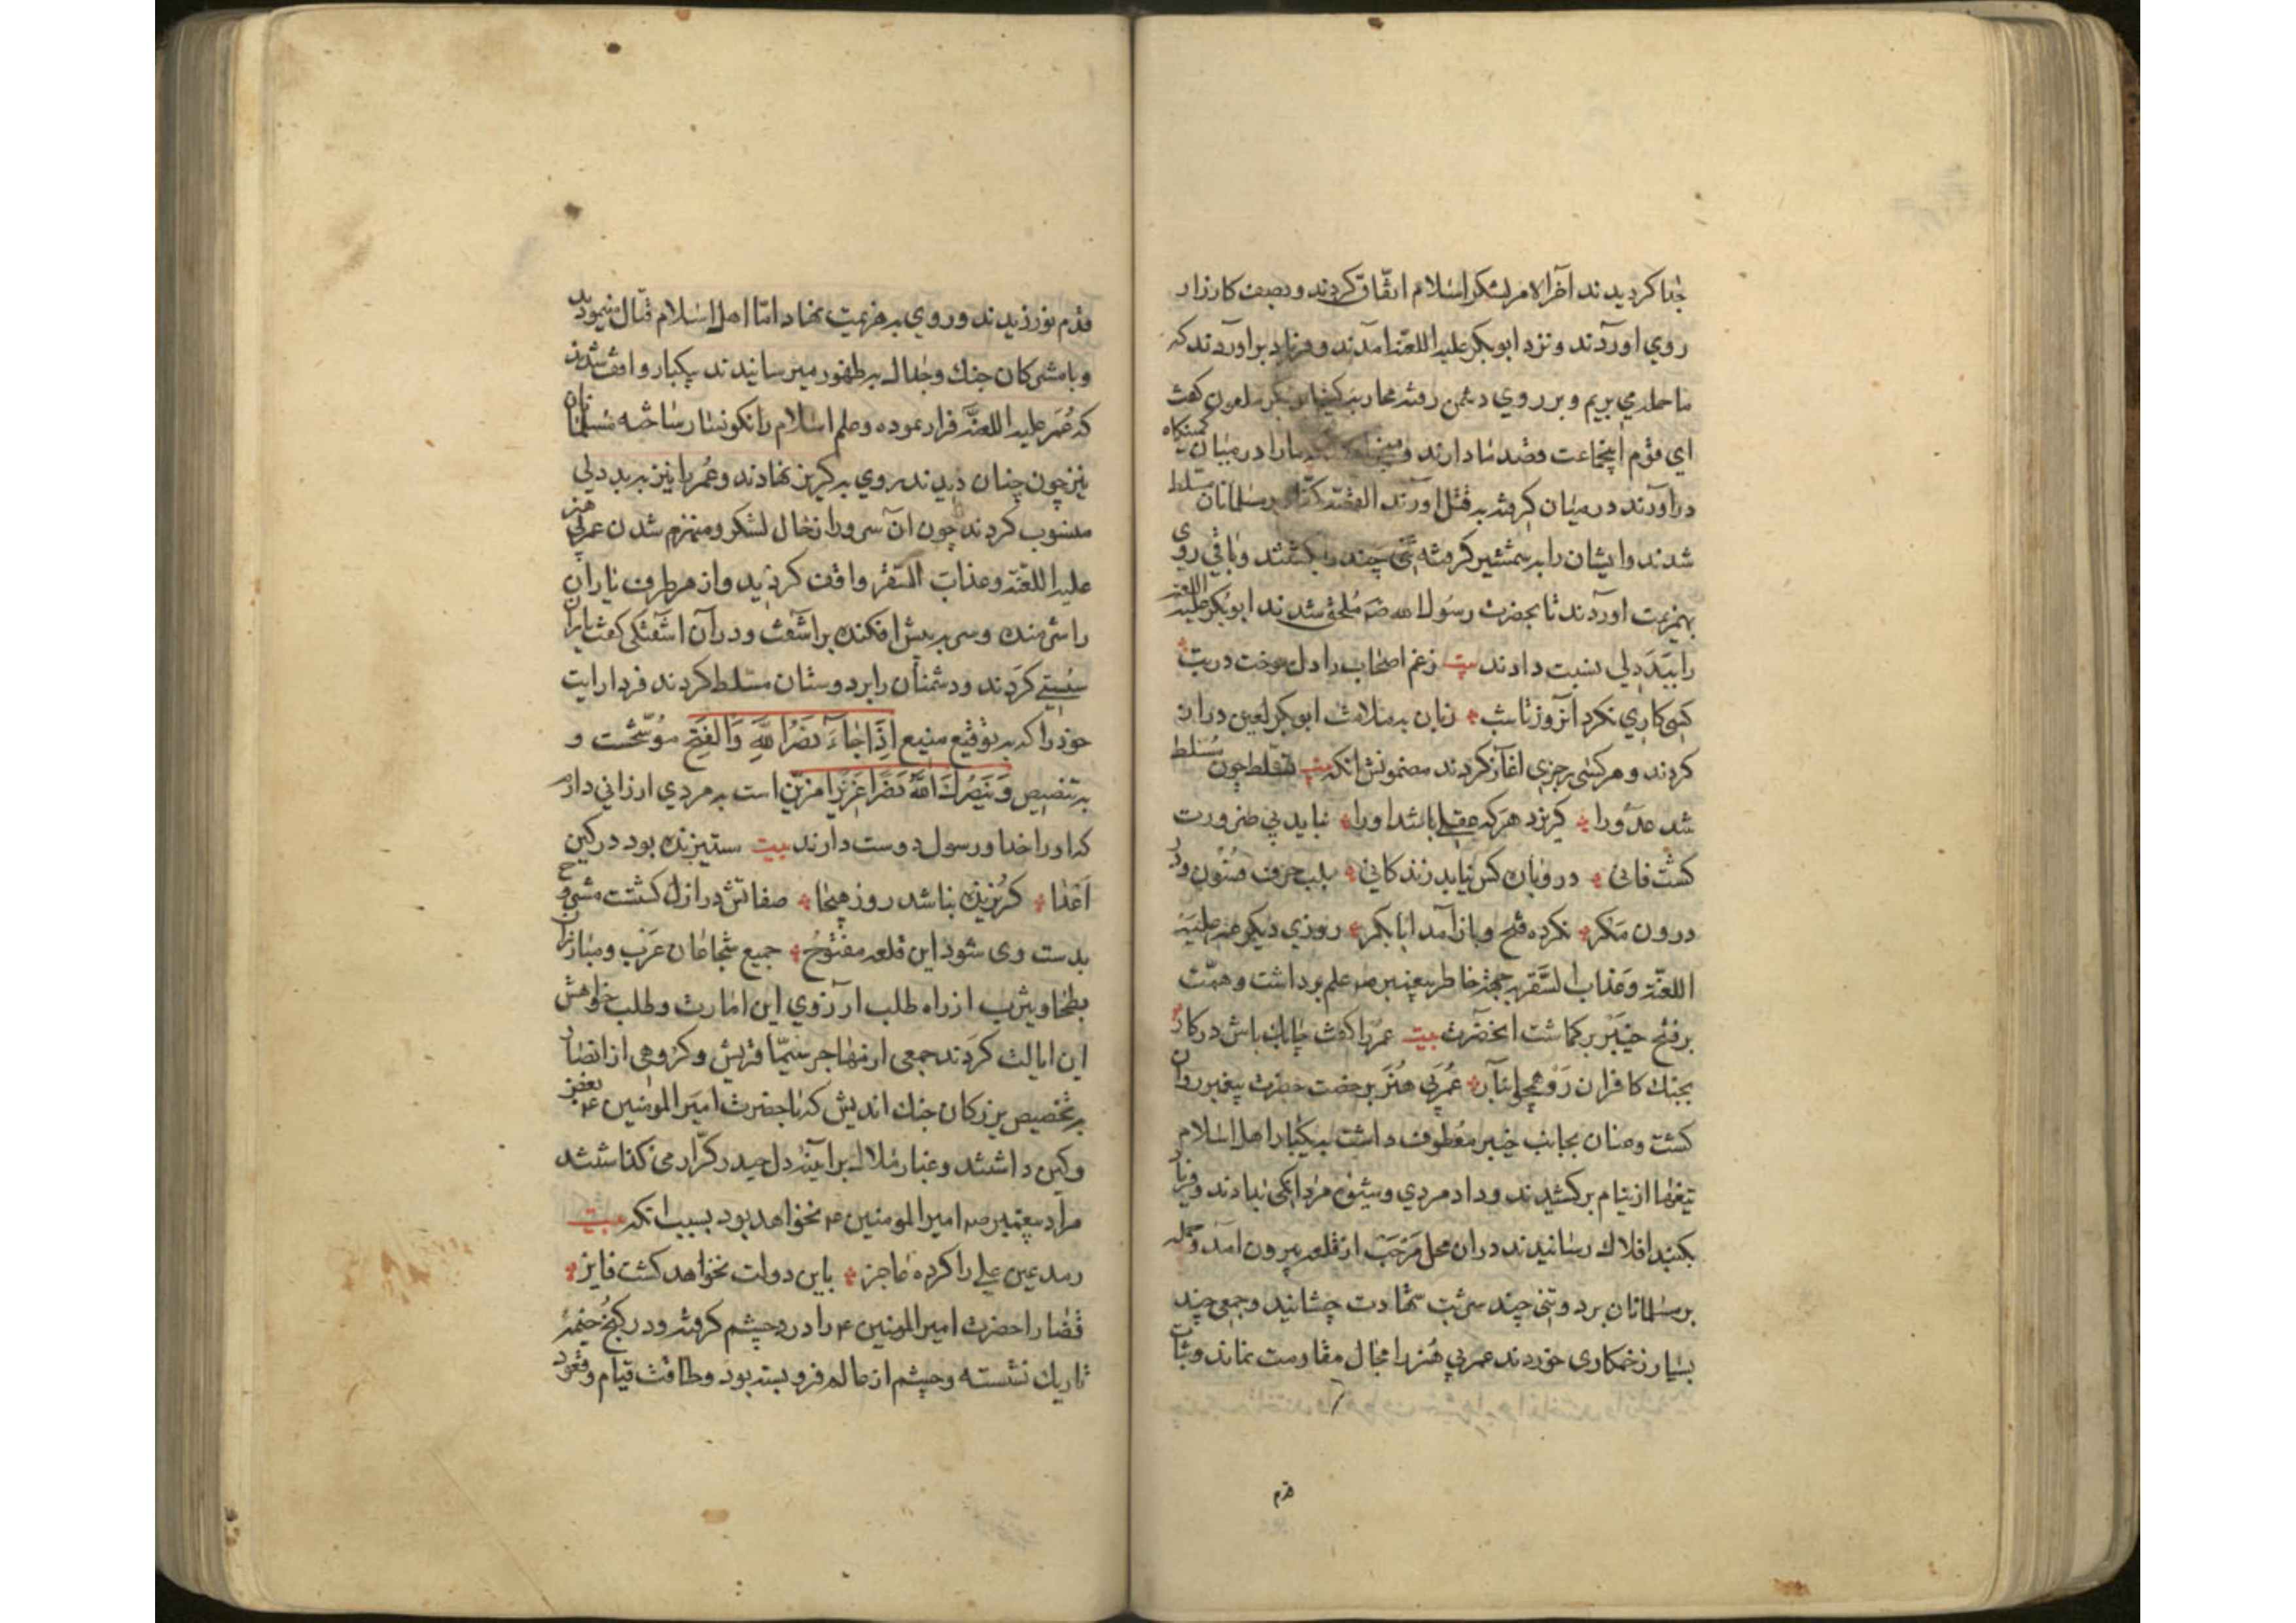 جدا کردیدند آخر الامر لشکر اسلام اتفاق کردند و بصف کارزار
روی اوردند و نزد ابوبکر علیه اللعنه امدند و فریاد براوردند که
ما حمله می بریم و بر روی دشمن رفته محاربه ملعون کفت
ای قوم اینجماعت قصد ما دارند ما را در میان کمینکاه
دراورند در میان کرفته بقتل اورند القصه کفار بر مسلمانان مسلط
شدند و ایشان را به شمشیر کرفته تنی چند را بکشتند و باقی روی
بهزیمت اوردند تا بحضرت رسول الله ص ملحق شدند ابوبکر علیه اللعنه
را ببددلی نسبت دادند بیت زغم اصحاب را دل سوخت در تب
کسی کاری نکرد آنروز تا شب زبان به ملامت ابوبکر لعین دراز
کردند و هر کسی رجزی آغاز کردند مضمونش انکه بیت تسلط چون مسلط
شد عدو را کریزد هر که عقلی باشد او را نباید بی ضرورت
کشت فانی دوباره کس نیابد زندکانی بلب حرف و در
درون منکر نکرده فتح و باز آمد ابابکر روزی دیکر عمر علیه
اللعنة و عذاب السقر بجهة خاطر پیغمبر ص علم برداشت و همت
بر فتح خیبر برکماشت انحضرت بیت عمر را کفت چابک باش در کار
بجنك کافران رو عمر بی هنر برخصت حضرت پیغمبر روان
کشت و عنان بجانب خیبر معطوف داشت بیکبار اهل اسلام
تیغها از نیام برکشیدند و داد مردی و شیوه مردانکی بدادند و فریاد
بکنبد افلاك رسانیدند در ان محل مرحب از قلعه بیرون آمد و حمله
بر مسلمانان برد و تنی چند شربت شهادت چشانید و جمعی چند
بسیار زخمکاری خوردند عمر بی هنر را مجال مقاومت نماند و ثبات
قدم
قدم نورزیدند و روی به هزیمت نهاد اما اهل اسلام قتال مینمودند
و با مشرکان جنك و جدال به ظهور میرسانیدند یکبار واقف شدند
که عمر علیه اللعنة فرار نموده و علم اسلام را نکونسار ساخته مسلمانان
نیز چون چنان دیدند روی به کریز نهادند و عمر را نیز به بد دلی
منسوب کردند چون ان سرور از حال لشکر و منهزم شدن عمر بی هنر
علیه اللعنة و عذاب السقر واقف کردید و از هر طرف یاران
را شرمنده و سر به پیش افکنده براشفت و در آن اشفتکی کفت یاران
سستی کردند و دشمنان را بر دوستان مسلط کردند فردا رایت
خود را که به توقیع منیع اِذَا جَاءَ نَصْرُ اللَّهِ وَالْفَتْحُ موشحست و
به تنصیص وَيَنْصُرَكَ اللَّهُ نَصْرًا عَزِيزًا مزین است به مردی ارزانی دارم
که او را خدا و رسول دوست دارند بیت ستیزنده بود در کین
اعدا کریزنده نباشد روز هیجا صفاتش در ازل کشتست مشروح
بدست وی شود این قلعه مفتوح جمیع شجاعان عرب و مبارزان
بطحا و یثرب از راه طلب ارزوی این امارت و طلب خواهش
این ایالت کردند جمعی از مهاجر سیما قریش و کروهی از انصار
به تخصیص بزرکان جنك اندیش که با حضرت امیر المومنین ع بعض
و کین داشتند و غبار ملال بر آینه دل حیدر کرار می کذاشتند
مراد پیغمبر ص امیر المومنین ع نخواهد بود بسبب انکه بیت
رمد عین علی را کرده عاجز باین دولت نخواهد کشت فایز
قضا را حضرت امیر المومنین ع را درد چشم کرفته و در کنج خیمهٔ
تاریك نشسته و چشم از عالم فرو بسته بود و طاقت قیام و قعود